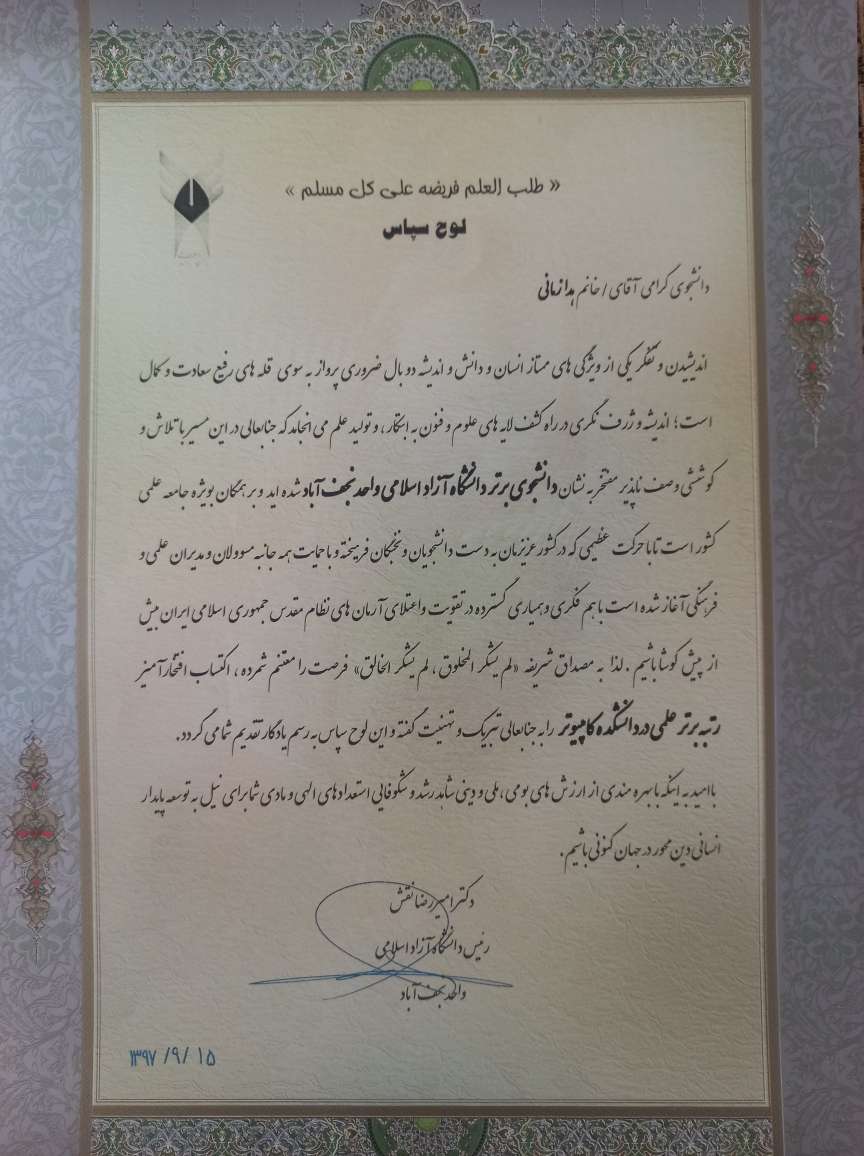 « طلب العلم فریضه علی کل مسلم »
لوح سپاس
دانشجوی گرامی آقای / خانم هدا زمانی
اندیشیدن و تفکر یکی از ویژگی های ممتاز انسان و دانش و اندیشه دو بال ضروری پرواز به سوی قله های رفیع سعادت و کمال
است؛ اندیشه و ژرف نگری در راه کشف لایه های علوم و فنون به ابتکار، و تولید علم می انجامد که جنابعالی در این مسیر با تلاش و
کوششی وصف ناپذیر مفتخر به نشان دانشجوی برتر دانشگاه آزاد اسلامی واحد نجف آباد شده اید و بر همگان بویژه جامعه علمی
کشور است تا با حرکت عظیمی که در کشور عزیزمان به دست دانشجویان و نخبگان فرهیخته و با حمایت همه جانبه مسوولان و مدیران علمی و
فرهنگی آغاز شده است با هم فکری و همیاری گسترده در تقویت و اعتلای آرمان های نظام مقدس جمهوری اسلامی ایران بیش
از پیش کوشا باشیم . لذا به مصداق شریفه «لم یشکر المخلوق ، لم یشکر الخالق» فرصت را مغتنم شمرده ، اکتساب افتخارآمیز
رتبه برتر علمی در دانشکده کامپیوتر را به جنابعالی تبریک و تهنیت گفته و این لوح سپاس به رسم یادگار تقدیم شما می گردد.
با امید به اینکه با بهره مندی از ارزش های بومی، ملی و دینی شاهد رشد و شکوفایی استعدادهای الهی و مادی شما برای نیل به توسعه پایدار
انسانی دین محور در جهان کنونی باشیم .
دکتر امیررضا نقش
رئیس دانشگاه آزاد اسلامی
واحد نجف آباد
۱۳۹۷ /۹/ ۱۵